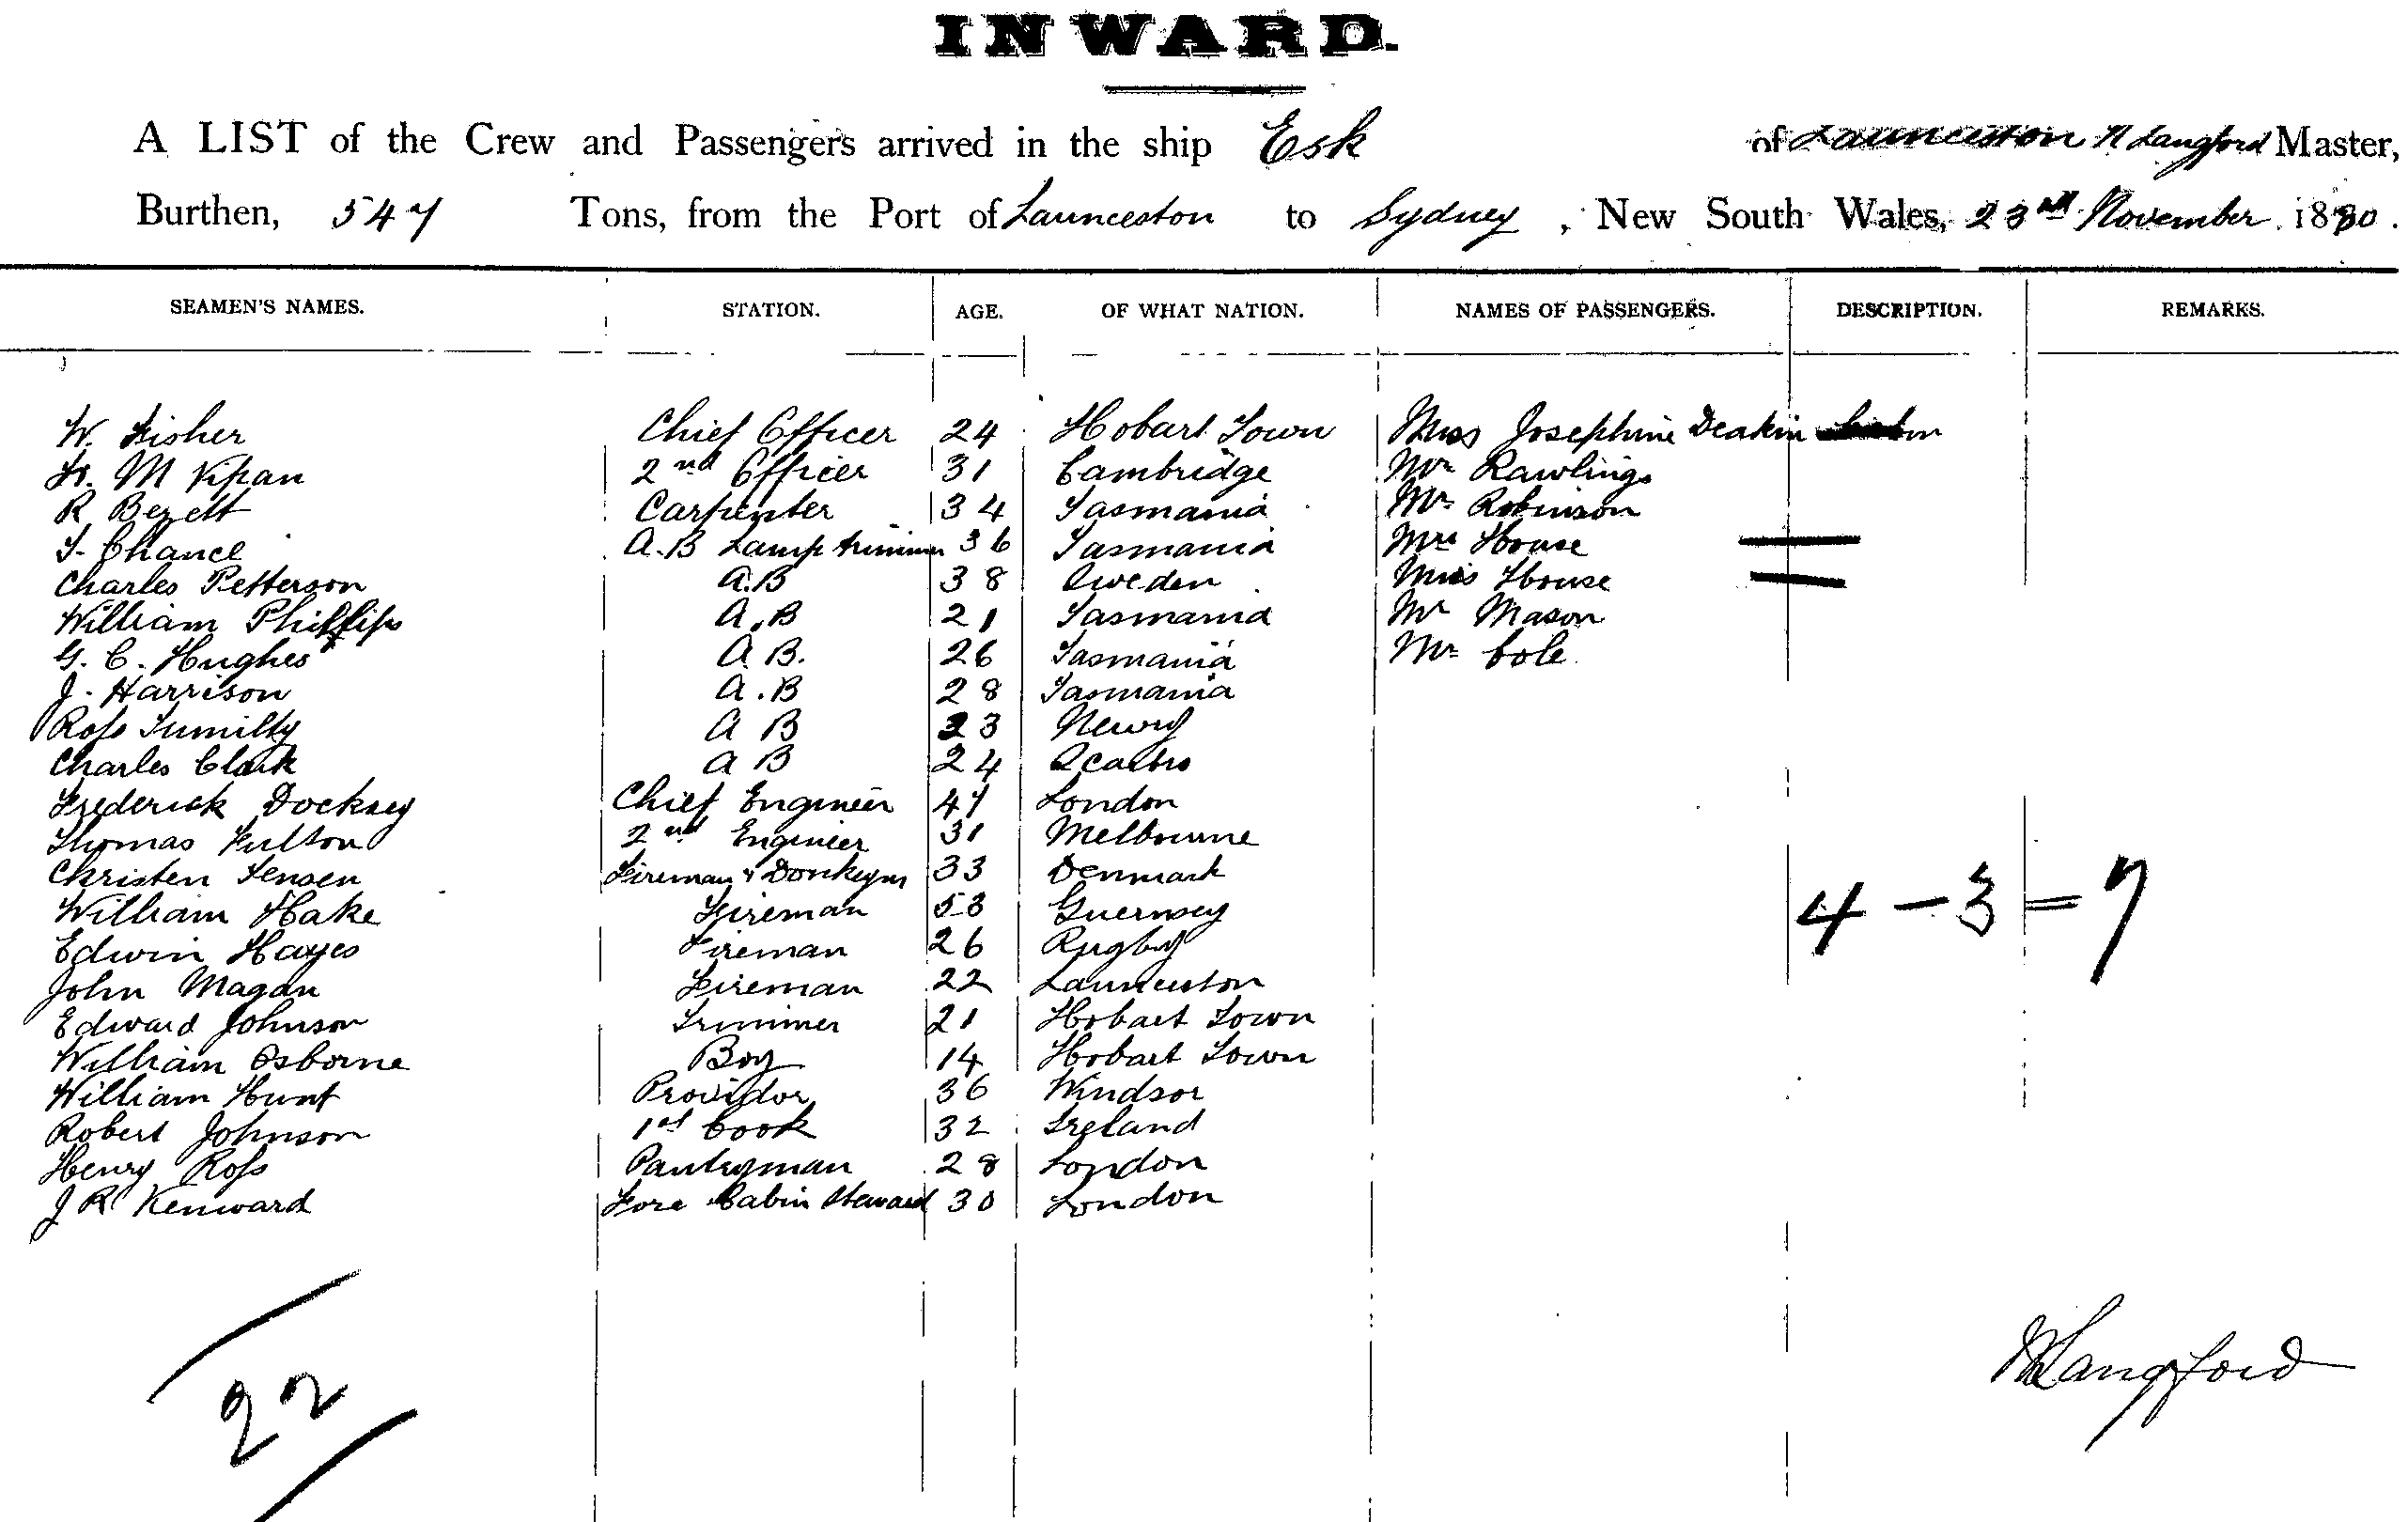 INWARD.
A LIST of the Crew and Passengers arrived in the ship Esk of Launceston Langford Master,
Burthen, 547 Tons, from the Port of Launceston to Sydney, New South Wales, 23rd November 1880.
SEAMEN'S NAMES. STATION. AGE. OF WHAT NATION. NAMES OF PASSENGERS. DESCRIPTION. REMARKS.
W. Fisher Chief Officer 24 Hobart Town Miss Josephine Deakin
M 2nd Officer 31 Cambridge Mr Rawlings
R Bezett Carpenter 34 Tasmania Mr Robinson
T. Chance A.B Lamp trimmer 36 Tasmania Mrs House
Charles Petterson A.B 38 Sweden Miss House
William Phillips A.B 21 Tasmania Mr Mason
G. C. Hughes A.B. 26 Tasmania Mr Cole
J. Harrison A.B 28 Tasmania
Ross Tumilty A B 23 Newry
Charles Clark A B 24
Frederick Docksey Chief Engineer 47 London
Thomas Fulton 2nd Engineer 31 Melbourne
Christen Jensen Fireman & Donkeyman 33 Denmark
4 - 3 = 7
William Hake Fireman 53 Guernsey
Edwin Hayes Fireman 26 Rugby
John Magan Fireman 22 Launceston
Edward Johnson Trimmer 21 Hobart Town
William Osborne Boy 14 Hobart Town
William Hunt Providor 36 Windsor
Robert Johnson 1st Cook 32 Ireland
Henry Ross Pantryman 28 London
J R Kenward Fore Cabin Steward 30 London
22
Langford